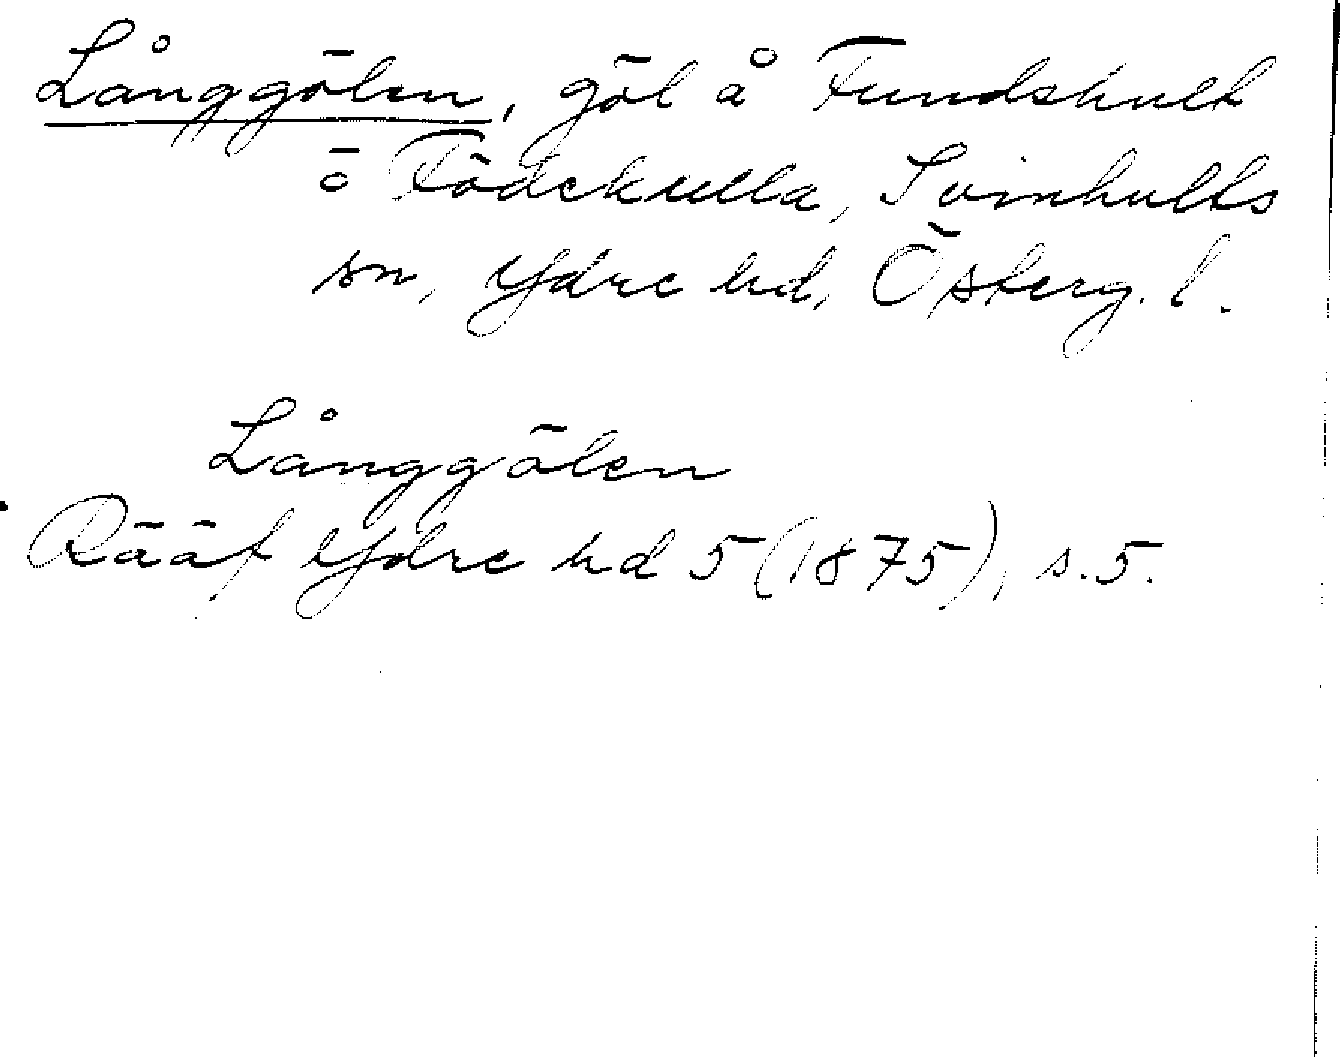 Långgölen, göl å Fundshult
ö Födekulla, Svinhults
sn, Ydre hd, Österg. l.
Långgölen
Rääf Ydre hd 5 (1875), s. 5.